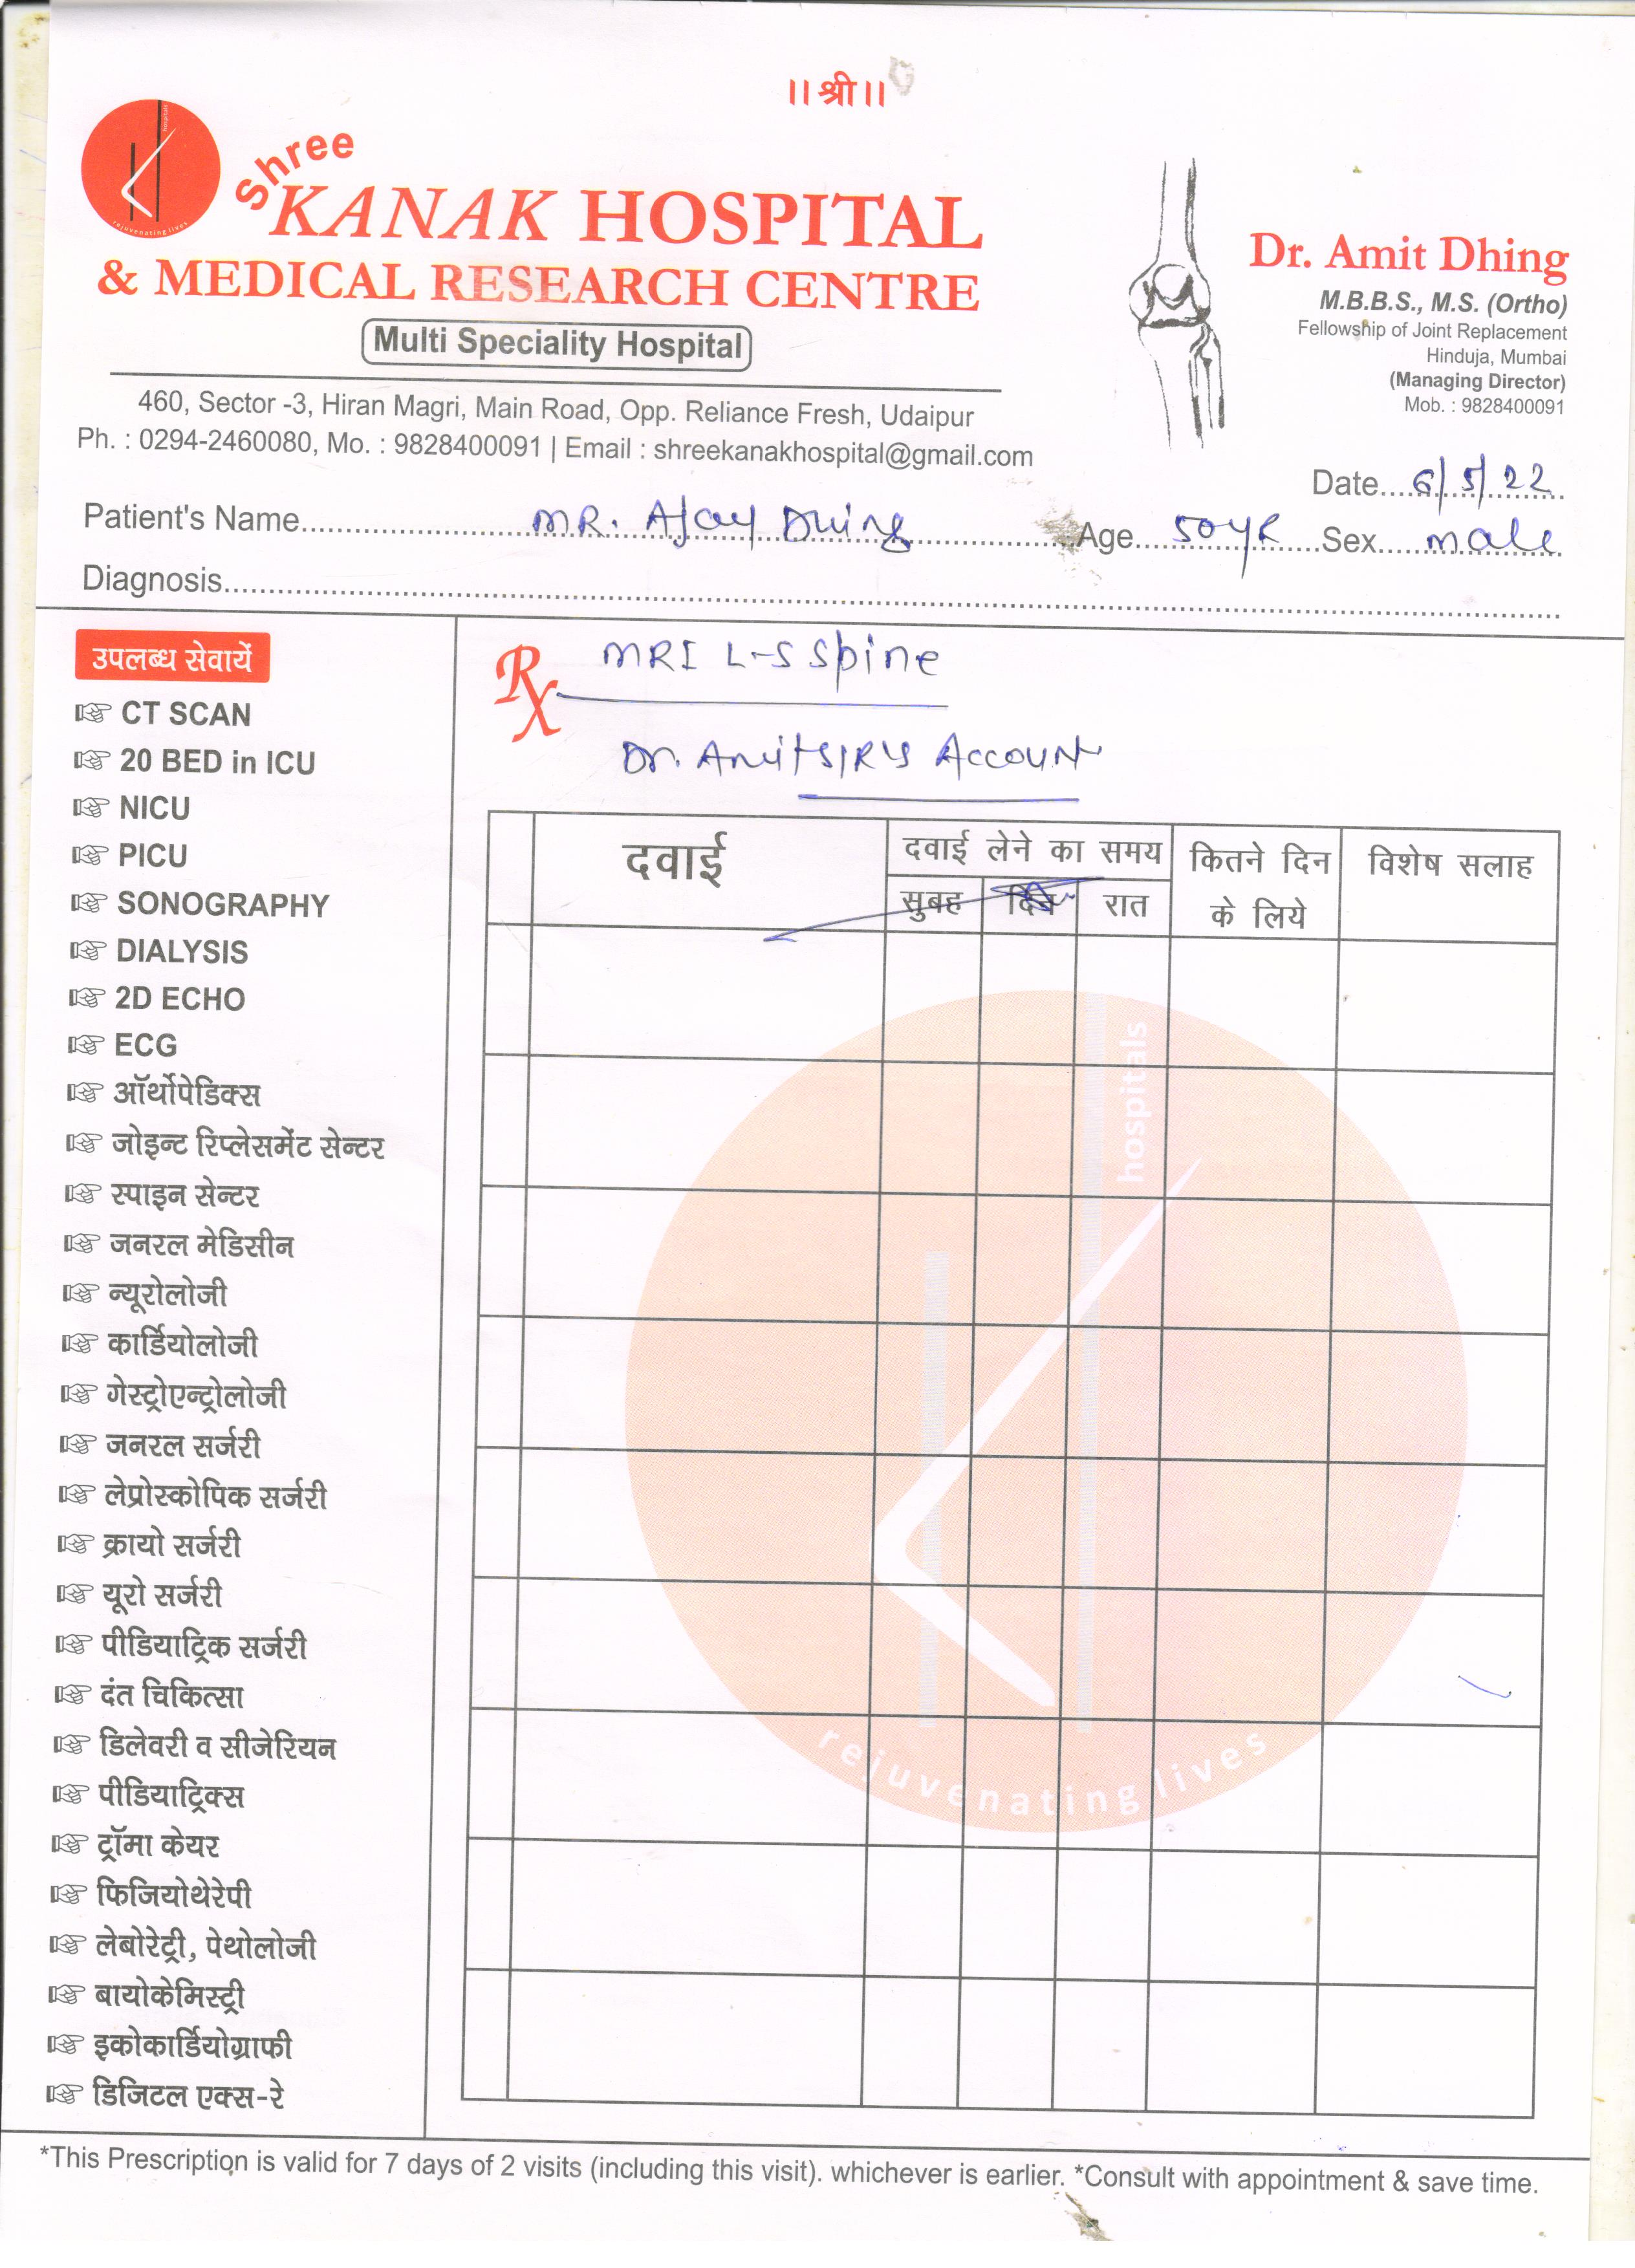 ।। श्री ।।
Shree
KANAK HOSPITAL
& MEDICAL RESEARCH CENTRE
Multi Speciality Hospital
460, Sector -3, Hiran Magri, Main Road, Opp. Reliance Fresh, Udaipur
Ph. : 0294-2460080, Mo. : 9828400091 | Email : shreekanakhospital@gmail.com
hospitals
rejuvenating lives
Dr. Amit Dhing
M.B.B.S., M.S. (Ortho)
Fellowship of Joint Replacement
Hinduja, Mumbai
(Managing Director)
Mob. : 9828400091
Date....6/5/22
Patient's Name.... MR. Ajay Dhing ....Age.... 50yR ....Sex.... male
Diagnosis....
उपलब्ध सेवायें
CT SCAN
20 BED in ICU
NICU
PICU
SONOGRAPHY
DIALYSIS
2D ECHO
ECG
ऑर्थोपेडिक्स
जोइन्ट रिप्लेसमेंट सेन्टर
स्पाइन सेन्टर
जनरल मेडिसीन
न्यूरोलोजी
कार्डियोलोजी
गेस्ट्रोएन्ट्रोलोजी
जनरल सर्जरी
लेप्रोस्कोपिक सर्जरी
क्रायो सर्जरी
यूरो सर्जरी
पीडियाट्रिक सर्जरी
दंत चिकित्सा
डिलेवरी व सीजेरियन
पीडियाट्रिक्स
ट्रॉमा केयर
फिजियोथेरेपी
लेबोरेट्री, पेथोलोजी
बायोकेमिस्ट्री
इकोकार्डियोग्राफी
डिजिटल एक्स-रे
Rx MRI L-S Spine
Dr. Amit SIR's Account
दवाई
दवाई लेने का समय
सुबह दिन रात
कितने दिन
के लिये
विशेष सलाह
hospitals
rejuvenating lives
*This Prescription is valid for 7 days of 2 visits (including this visit). whichever is earlier. *Consult with appointment & save time.